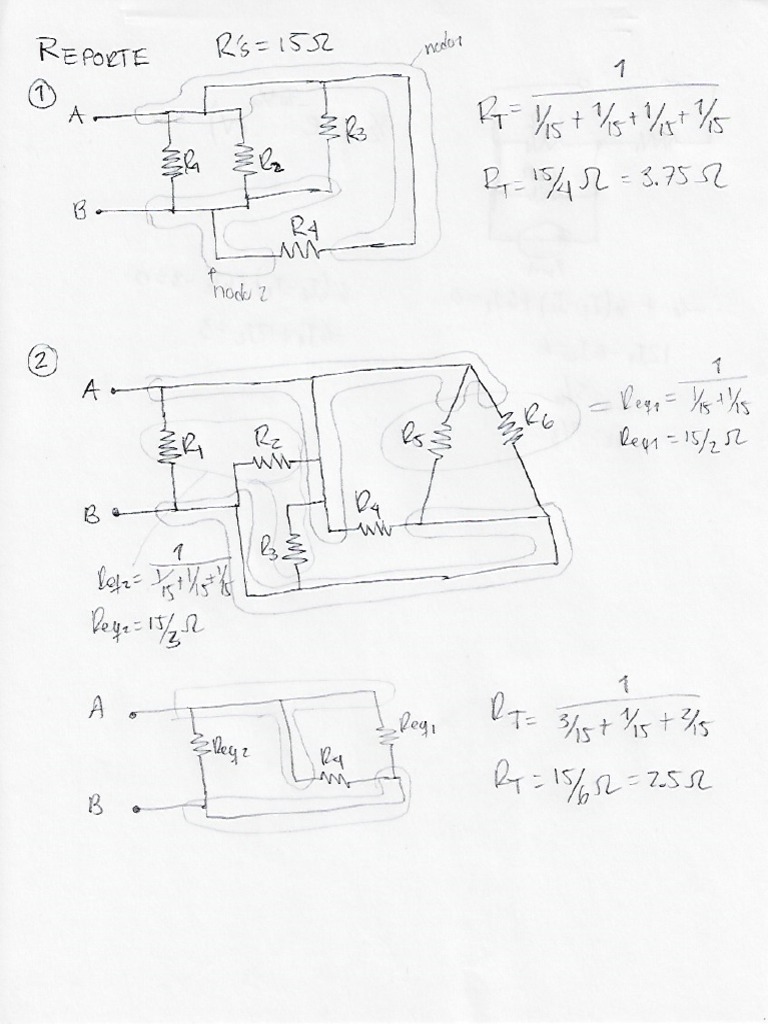 REPORTE R's = 15Ω
nodo 1
①
A
R1 R2 R3
B
R4
nodo 2
RT = 1 / (1/15 + 1/15 + 1/15 + 1/15)
RT = 15/4 Ω = 3.75 Ω
②
A
R1 R2 R5 R6
B
R3 R4
= Req1 = 1 / (1/15 + 1/15)
Req1 = 15/2 Ω
Req2 = 1 / (1/15 + 1/15 + 1/15)
Req2 = 15/3 Ω
A
Req2 R4 Req1
B
RT = 1 / (3/15 + 1/15 + 2/15)
RT = 15/6 Ω = 2.5 Ω